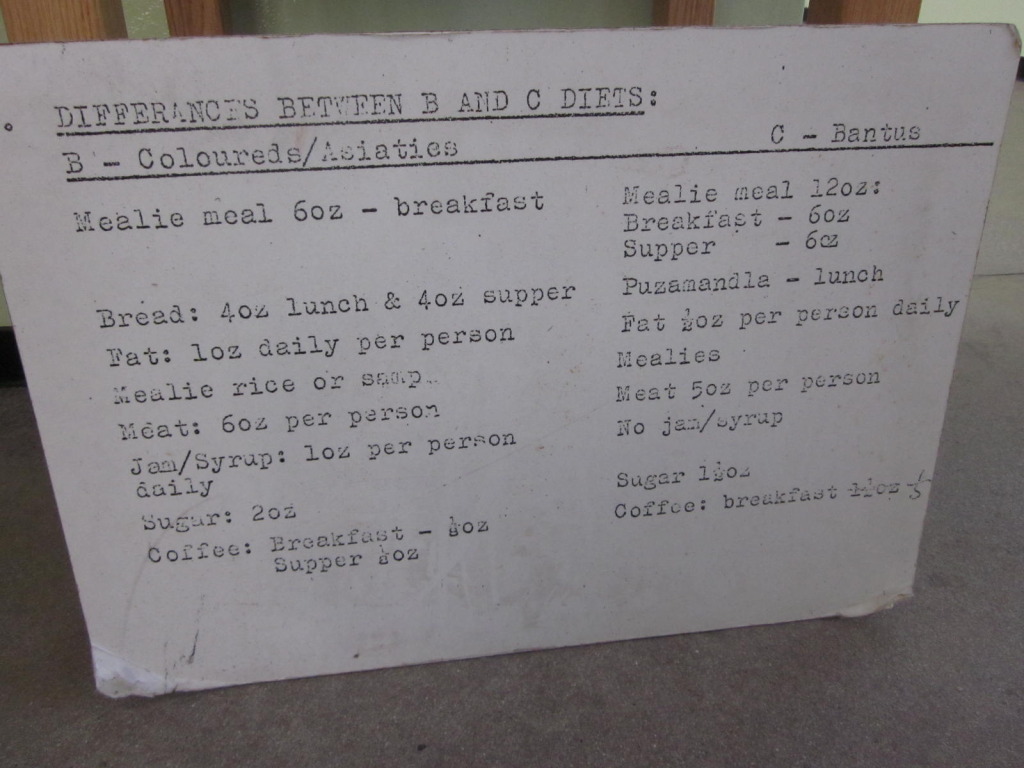 DIFFERANCES BETWEEN B AND C DIETS:
B - Coloureds/Asiaties
C - Bantus
Mealie meal 6oz - breakfast
Bread: 4oz lunch & 4oz supper
Fat: 1oz daily per person
Mealie rice or samp
Meat: 6oz per person
Jam/Syrup: 1oz per person
daily
Sugar: 2oz
Coffee: Breakfast - ½oz
Supper ½oz
Mealie meal 12oz:
Breakfast - 6oz
Supper - 6oz
Puzamandla - lunch
Fat ½oz per person daily
Mealies
Meat 5oz per person
No jam/syrup
Sugar 1½oz
Coffee: breakfast